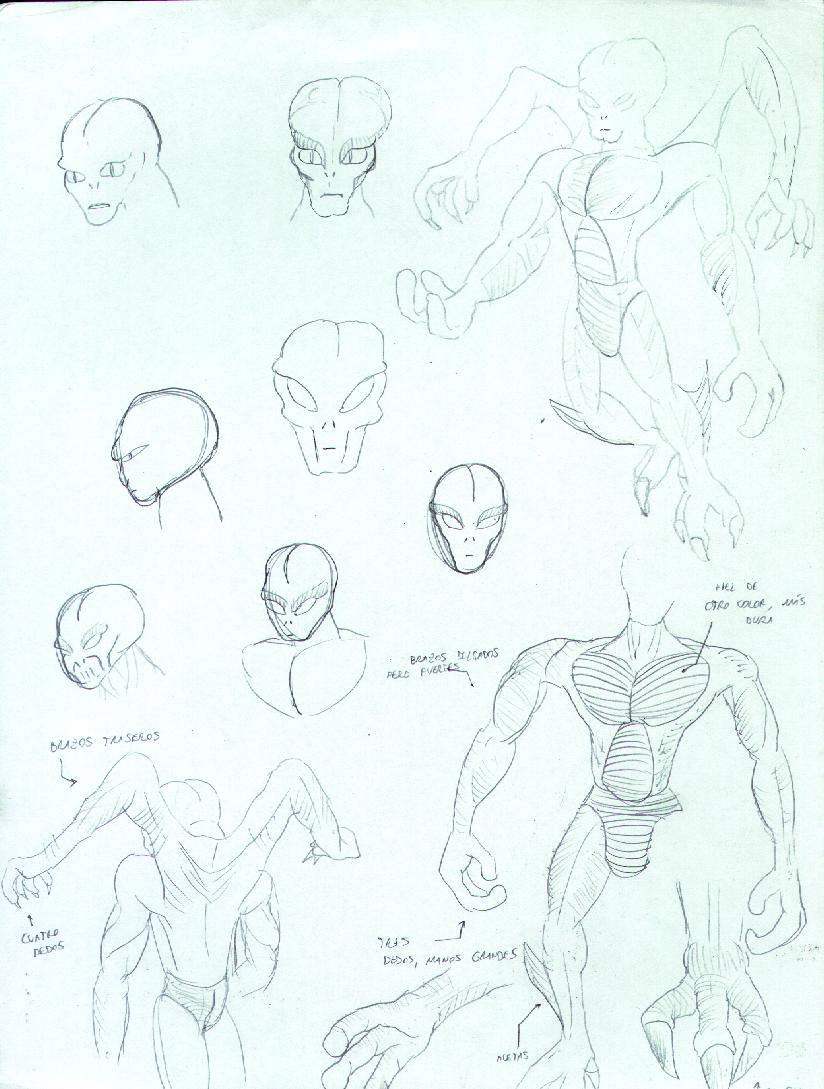 PIEL DE
OTRO COLOR, MÁS
DURA
BRAZOS DELGADOS
PERO FUERTES
BRAZOS TRASEROS
CUATRO
DEDOS
TRES
DEDOS, MANOS GRANDES
ALETAS